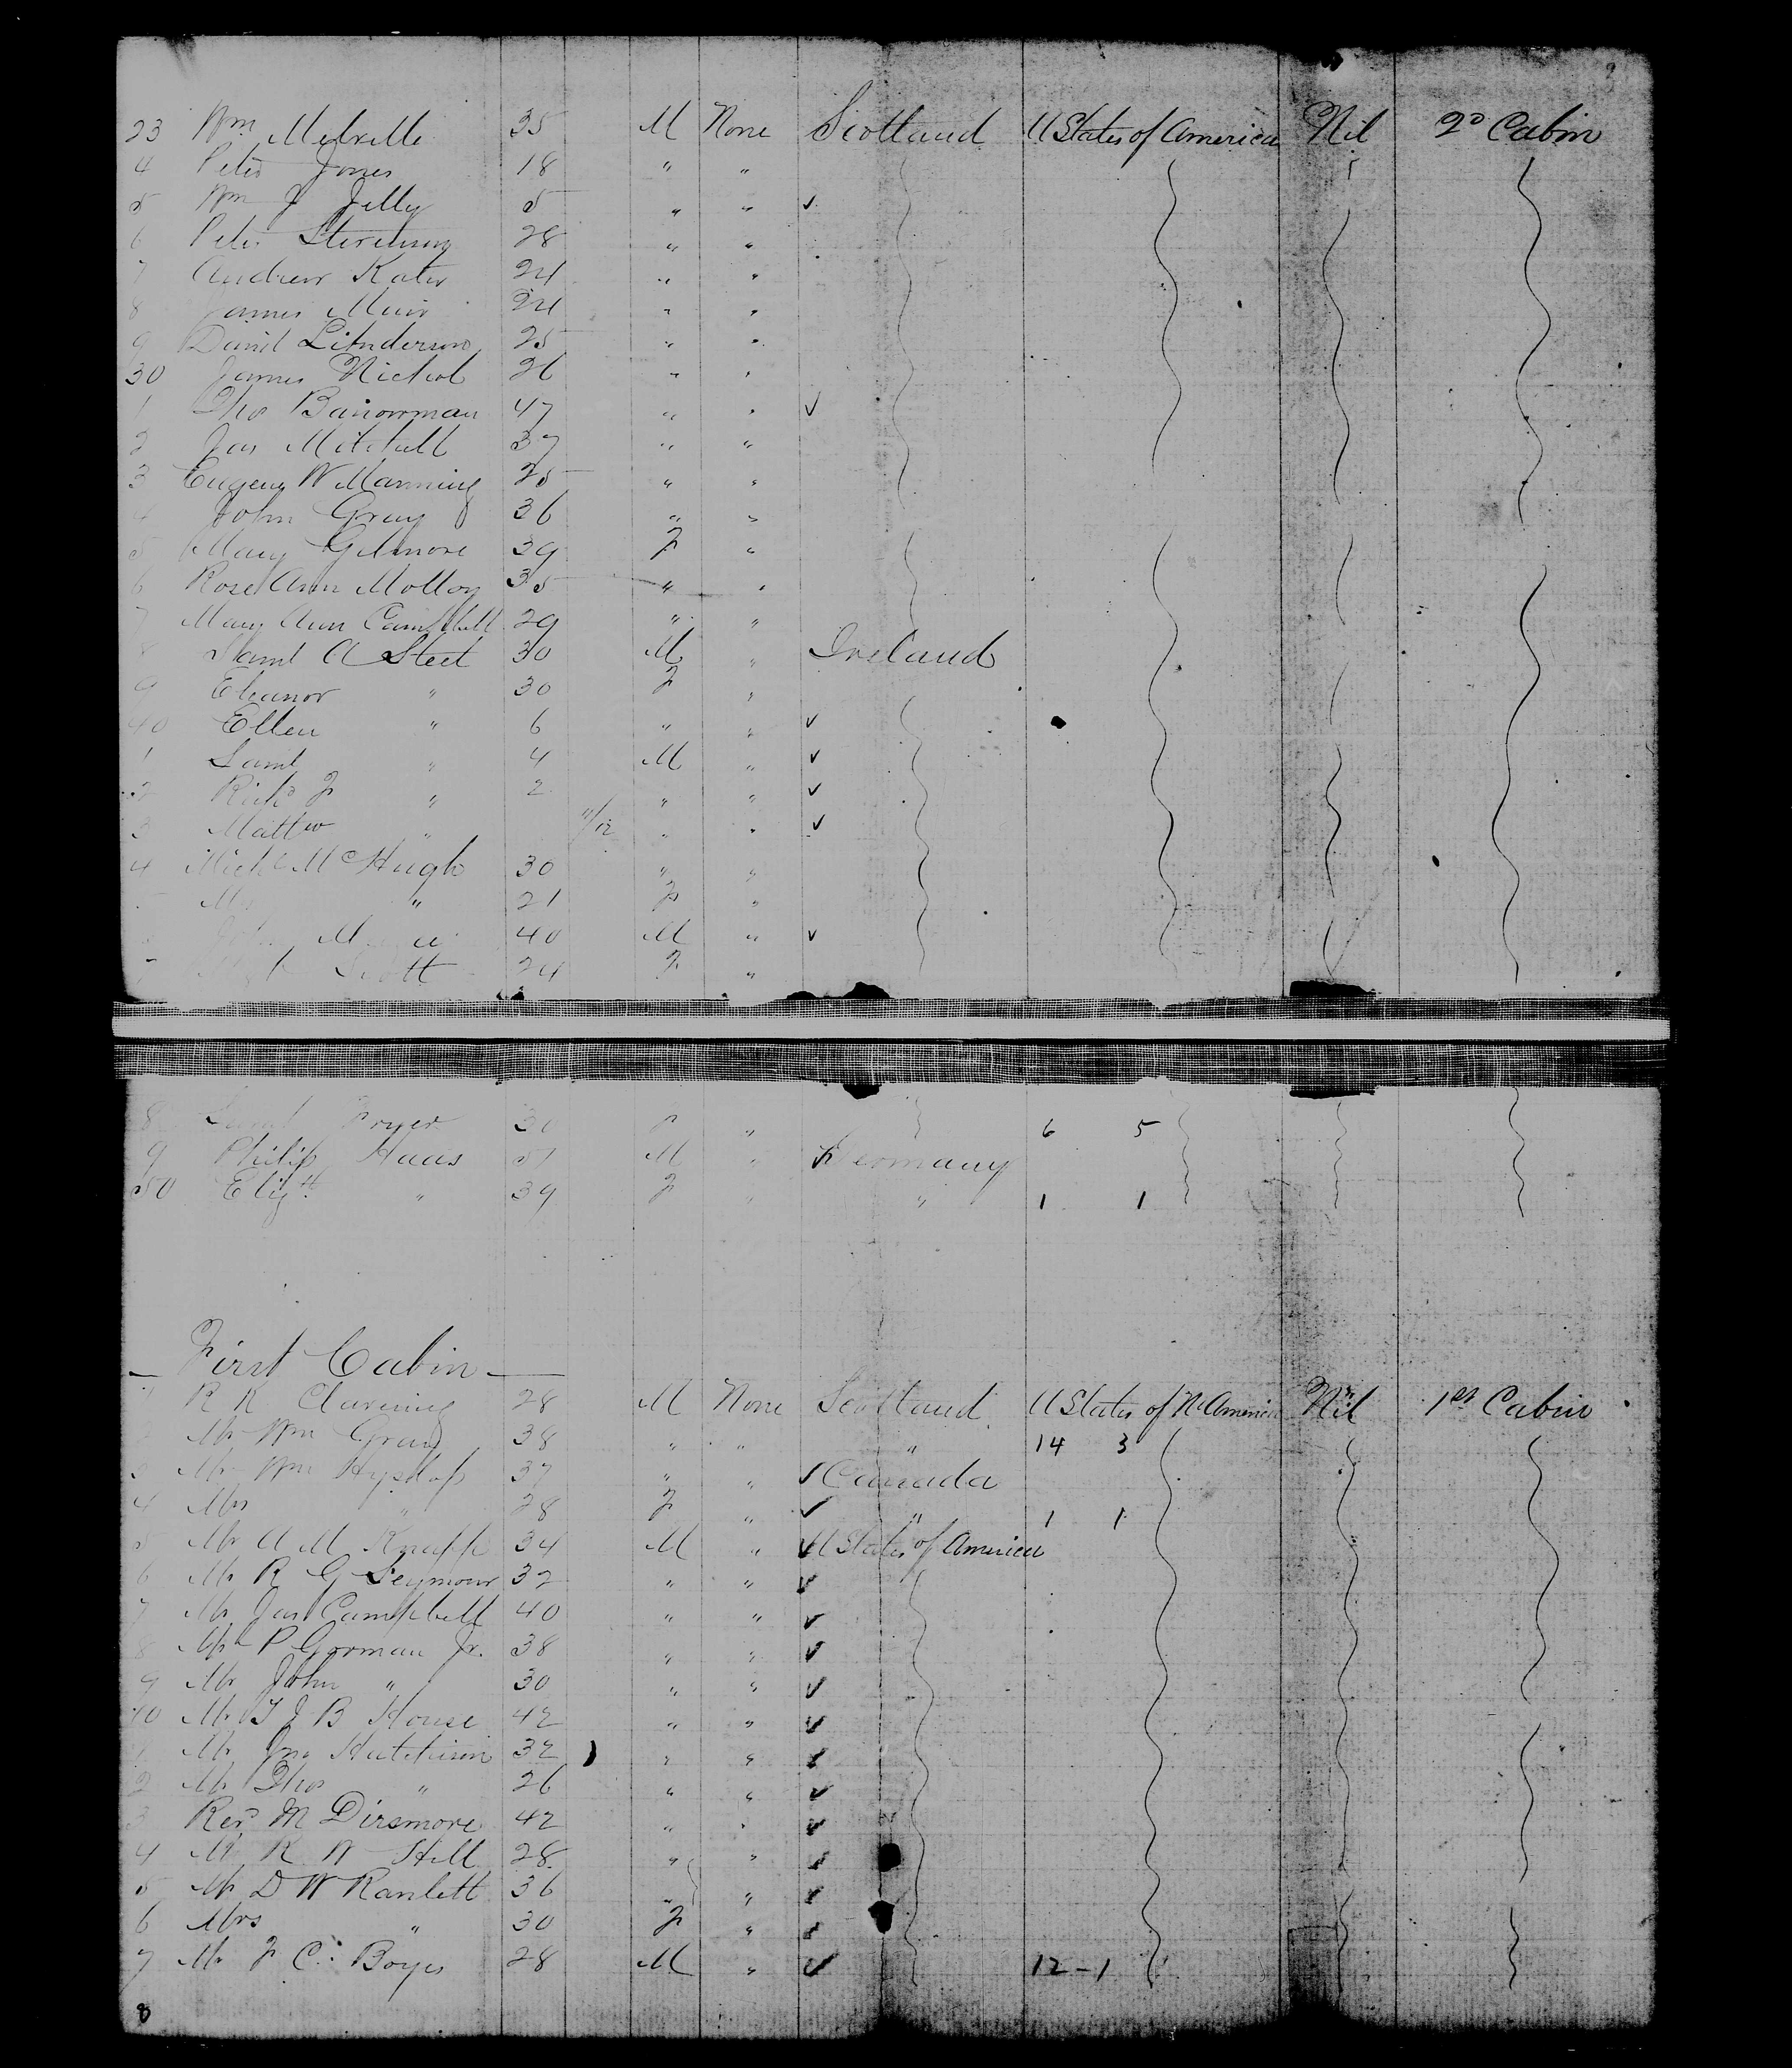 23 Wm Melville 35 M None Scotland U States of America Nil 2D Cabin
4 Peter Jones 18 " "
5 Wm J Jelly 5 " " ✓
6 Peter 28 " "
7 Andrew 24 " "
8 James Muir 24 " "
9 David 25 " "
30 James Nichol 26 " "
1 Thos 47 " " ✓
2 Jas Mitchell 37 " "
3 Eugene W Manning 25 " "
4 John Gray 36 " "
5 Mary Gilmore 39 F "
6 Rose Ann 35 " "
7 Mary Ann Campbell 29 " "
8 Saml A Steet 30 M " Ireland
9 Eleanor " 30 F "
40 Ellen " 6 " " ✓
1 Saml " 4 M " ✓
2 Richd J " 2 " " ✓
3 Mattw " 11/12 " " ✓
4 Michl McHugh 30 " "
Mrs " 21 F "
40 M " ✓
Scott 24 F "
8 Fryer 31 F " 6 5
9 Philip Haas 51 M " Germany
50 Elizth " 39 F " " 1 1
— First Cabin —
R R 28 M None Scotland U States of N America Nil 1st Cabin
2 Mr Wm Gray 38 " " " 14 3
3 Mr Wm Hyslop 37 " " ✓ Canada
4 Mrs " 28 F " ✓ " 1 1
5 Mr A M Knapp 34 M " ✓ U States of America
6 Mr R G Seymour 32 " " ✓
7 Mr Jas Campbell 40 " " ✓
8 Mr P Gorman Jr. 38 " " ✓
9 Mr John " 30 " " ✓
10 Mr T J B House 42 " " ✓
1 Mr Jno Hutchison 32 " " ✓
2 Mr Thos " 26 " " ✓
3 Revd M Dinsmore 42 " " ✓
4 Mr R W Hill 28 " " ✓
5 Mr D W Ranlett 36 " " ✓
6 Mrs " 30 F " ✓
7 Mr F C. Boyes 28 M " ✓ 12-1
8